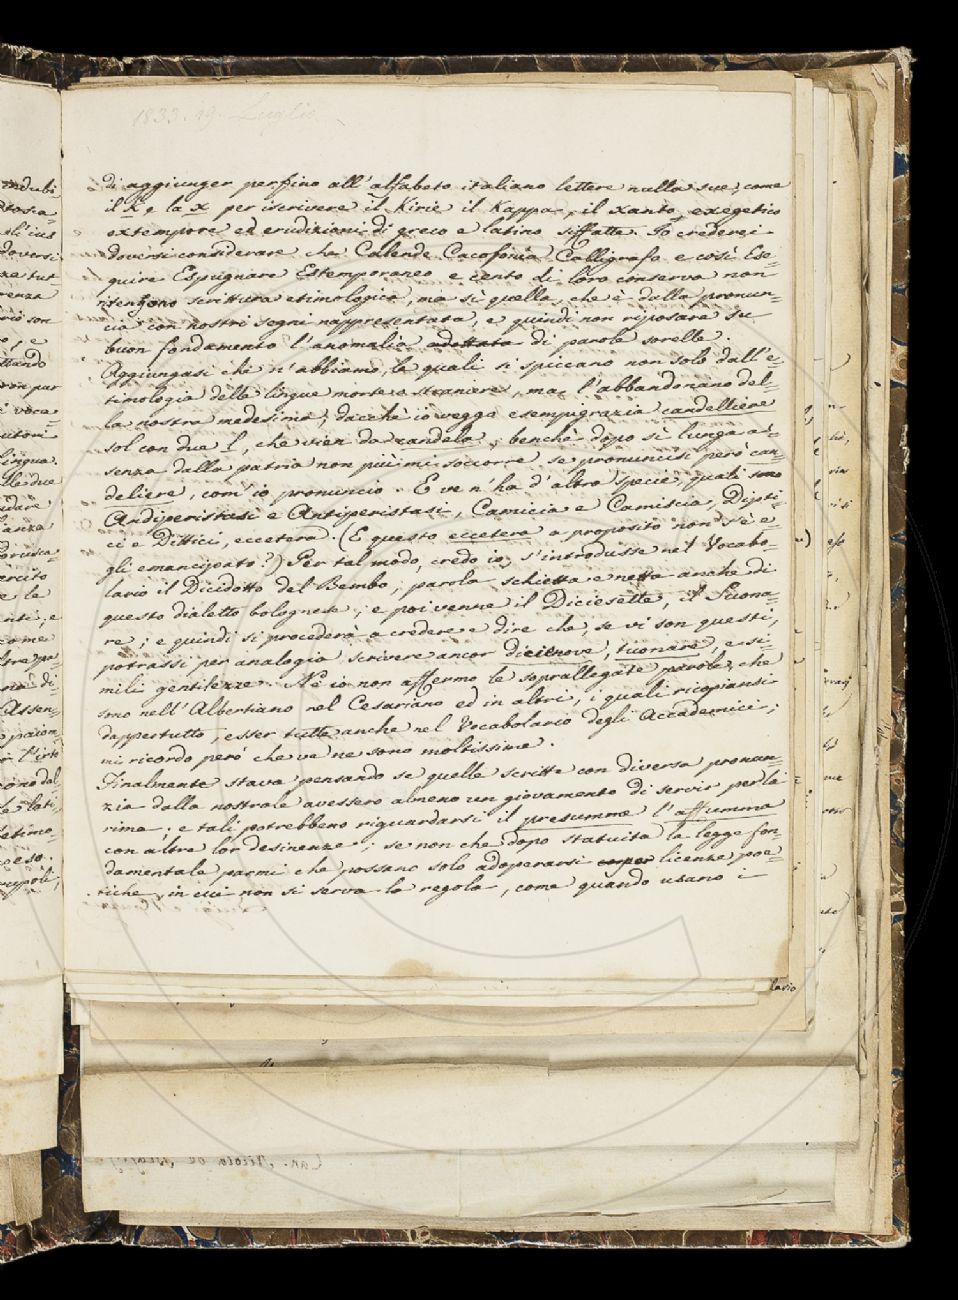 1833. 19. Luglio
di aggiunger perfino all'alfabeto italiano lettere nulla sue, come
il K, e la x per iscrivere il Kirie il Kappa, il xanto, exegetico
extempore ed erudizioni di greco e latino siffatte. Io crederei
doversi considerare che Calende Cacofonia Calligrafo e così Ese=
guire Espugnare Estemporaneo e cento di loro conserva non
tengono scrittura etimologica, ma sì quella, che è dalla pronun=
cia con nostri segni rappresentata, e quindi non riposare su
buon fondamento l'anomalia adottata di parole sorelle.
Aggiungasi chi n'abbiamo, le quali si spiccano non solo dall'e=
timologia delle lingue morte e straniere, ma l'abbandonano del=
la nostra medesima; dacchè io veggo esempigrazia candelliere
sol con due l, che vien da candela, benchè dopo sì lunga as=
senza dalla patria non più mi soccorre se pronuncisi però can=
deliere, com'io pronuncio. E ve n'ha d'altra specie, quali sono
Andiperistasi e Antiperistasi, Camicia e Camiscia, Dipti=
ci e Dittici, eccetera. (E questo eccetera a proposito non s'è e=
gli emancipato?) Per tal modo, credo io, s'introdusse nel Vocabo=
lario il Dicidotto del Bembo, parola schietta e netta anche di
questo dialetto bolognese; e poi venne il Diciesette, il Suona=
re; e quindi si procederà a credere e dire che, se vi son questi,
potrassi per analogia scrivere ancor dicienove, tuonare, e si=
mili gentilezze. Nè io non affermo le soprallegate parole, che
sono nell'Albertiano nel Cesariano ed in altri, i quali ricopiansi
dappertutto, esser tutte anche nel Vocabolario degli Accademici;
mi ricordo però che ve ne sono moltissime.
Finalmente stava pensando se quelle scritte con diversa pronun=
zia dalla nostrale avessero almeno un giovamento di servir per la
rima; e tali potrebbono riguardarsi il presumma l'assumma
con altre lor desinenze; se non che dopo statuita la legge fon=
damentale parmi che possano solo adoperarsi come licenze poe=
tiche, in cui non si serva la regola, come quando usano i
lario